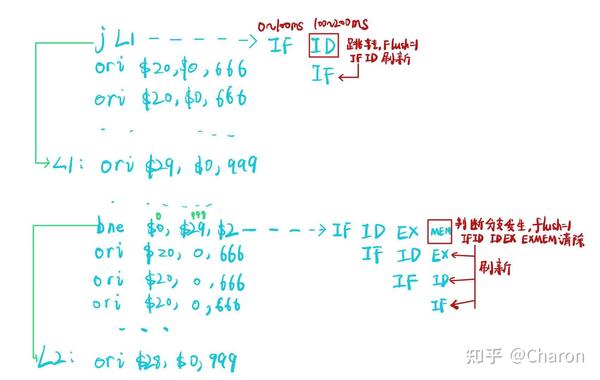 0~100ms 100~200ms
j L1 - - - - - → IF ID 跳转,Flush=1
IF ID 刷新
ori $20,$0,666 IF
ori $20,$0,666
L1: ori $29,$0,999
0 999
bne $0,$29,$2 - - - - → IF ID EX MEM 判断分支发生,flush=1
IFID IDEX EXMEM 清除
ori $20,0,666 IF ID EX
刷新
ori $20,0,666 IF ID
ori $20,0,666 IF
L2: ori $28,$0,999
知乎 @Charon